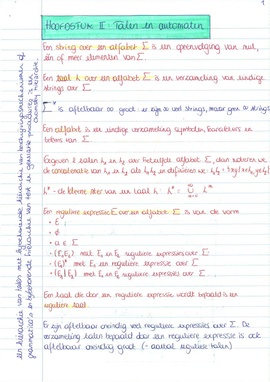 1
HOOFDSTUK II: Talen en automaten
Een string over een alfabet Σ is een opeenvolging van nul,
één of meer elementen van Σ.
Een taal L over een alfabet Σ is een verzameling van eindige
strings over Σ.
is aftelbaar ∞ groot: er zijn ∞ veel strings, maar geen ∞ strings
Een alfabet is een eindige verzameling symbolen, karakters en
tekens van Σ.
Gegeven 2 talen L₁ en L₂ over hetzelfde alfabet Σ, dan noteren we
de concatenatie van L₁ en L₂ als L₁L₂ en definiëren we: L₁L₂ = {xy | x∈L₁, y∈L₂}
L* = de kleene ster van een taal L = L* = ∪ Lⁿ
Een reguliere expressie E over een alfabet Σ is van de vorm
• ε
• ϕ
• a ∈ Σ
• (E₁E₂) met E₁ en E₂ reguliere expressies over Σ
• (E₁)* met E₁ een reguliere expressie over Σ
• (E₁|E₂) met E₁ en E₂ reguliere expressies over Σ.
Een taal die door een reguliere expressie wordt bepaald is een
reguliere taal.
Er zijn aftelbaar oneindig veel reguliere expressies over Σ. De
verzameling talen bepaald door een reguliere expressie is ook
aftelbaar oneindig groot (= aantal reguliere talen)
een hiërarchie van talen met bijhorende hiërarchie van
grammatica's en
Chomsky hiërarchie.